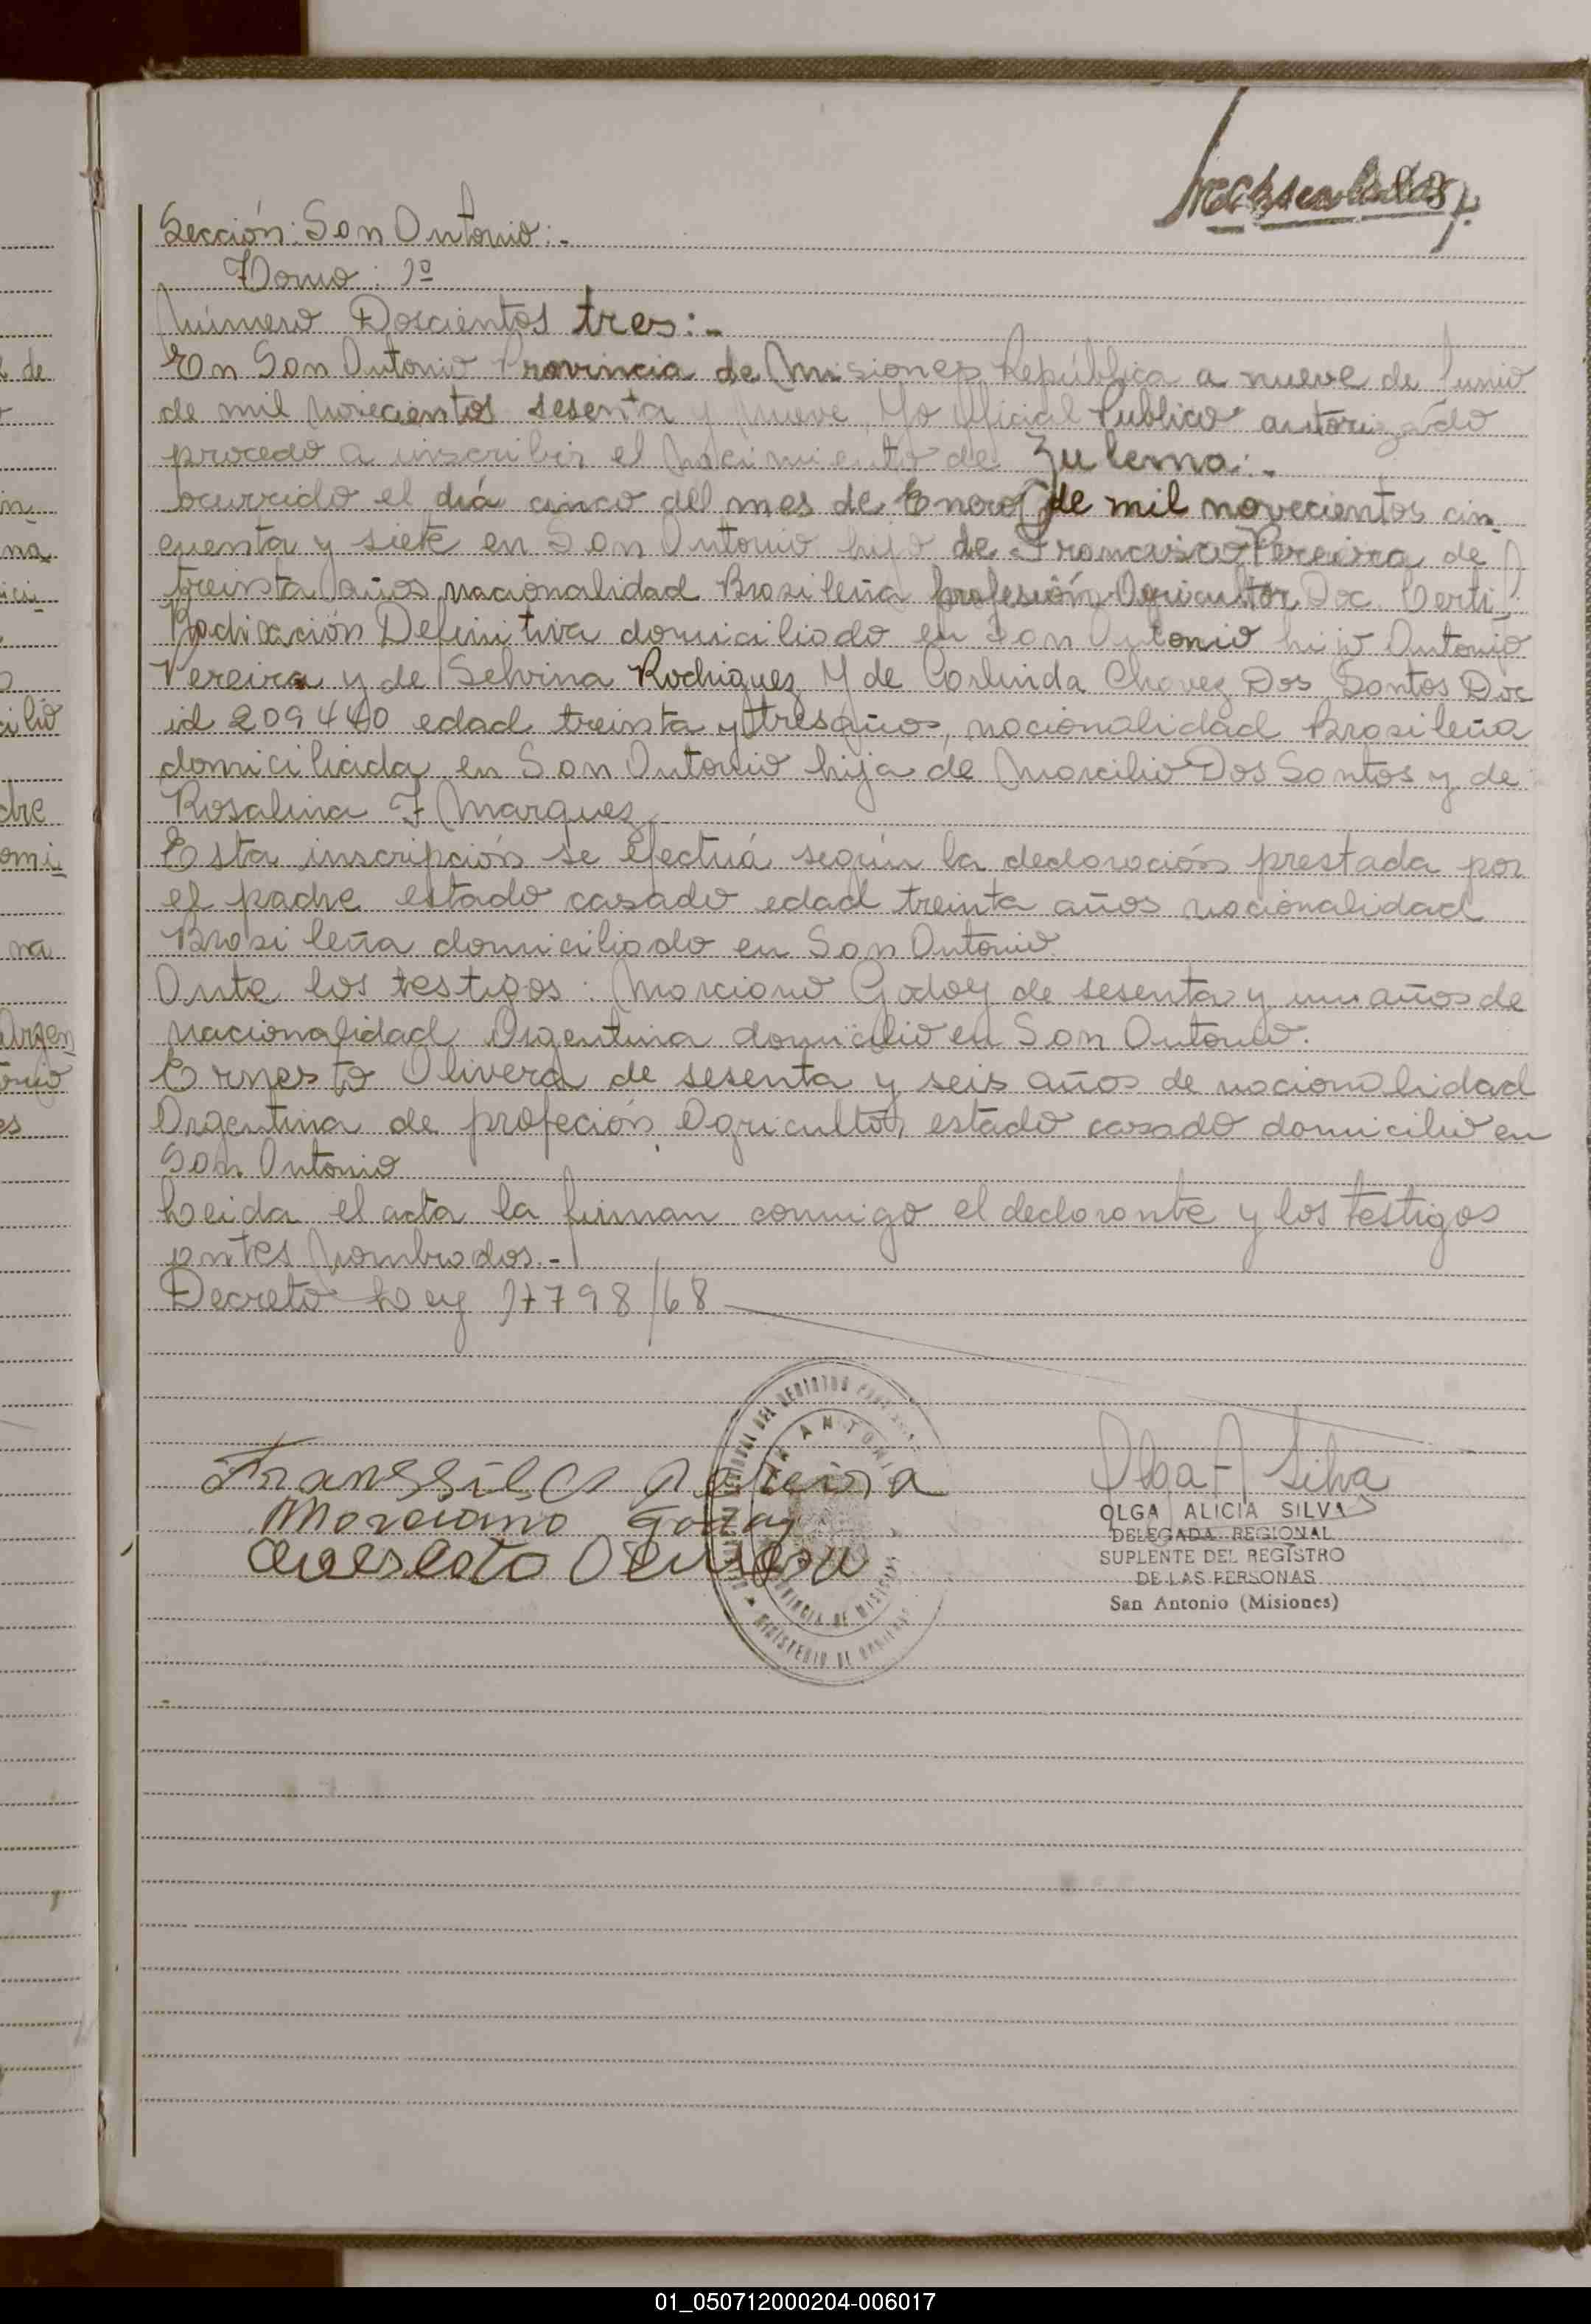 Sección: San Antonio:-
Tomo: 1º
Número Doscientos tres:-
En San Antonio Provincia de Misiones República a nueve de Junio
de mil noviecientos sesenta y nueve, Yo Oficial Publico autorizado
procedo a inscribir el nacimiento de Zulema:-
ocurrido el diá cinco del mes de Enero de mil novecientos cin-
cuenta y siete en San Antonio hijo de Francisco Pereira de
treinta años nacionalidad Brasileña profesión Agricultor Doc. Certif
Radicación Definitiva domiciliado en San Antonio hijo Antonio
Pereira y de Selvina Rodriguez Y de Carlinda Chavez Dos Santos Doc
id 209440 edad treinta y tres años, nacionalidad Brasileña
domiciliada en San Antonio hija de Marcilio Dos Santos y de
Rosalina F Marquez
Esta inscripción se efectuá según la declaración prestada por
el padre estado casado edad treinta años nacionalidad
Brasileña domiciliado en San Antonio
Ante los testigos: Marciano Godoy de sesenta y un años de
nacionalidad Argentina domicilio en San Antonio.
Ernesto Olivera de sesenta y seis años de nacionalidad
Argentina de profeción Agricultor, estado casado domicilio en
San Antonio
Leida el acta la firman conmigo el declarante y los testigos
antes nombrados.-
Decreto Ley 17798/68
Marciano Godoy
Olga A Silva
OLGA ALICIA SILVA
DELEGADA REGIONAL
SUPLENTE DEL REGISTRO
DE LAS PERSONAS
San Antonio (Misiones)
SAN ANTONIO
PROVINCIA DE MISIONES
MINISTERIO DE
de
n-
na
ici-
cilio
dre
omi
na
Argen
es
01_050712000204-006017